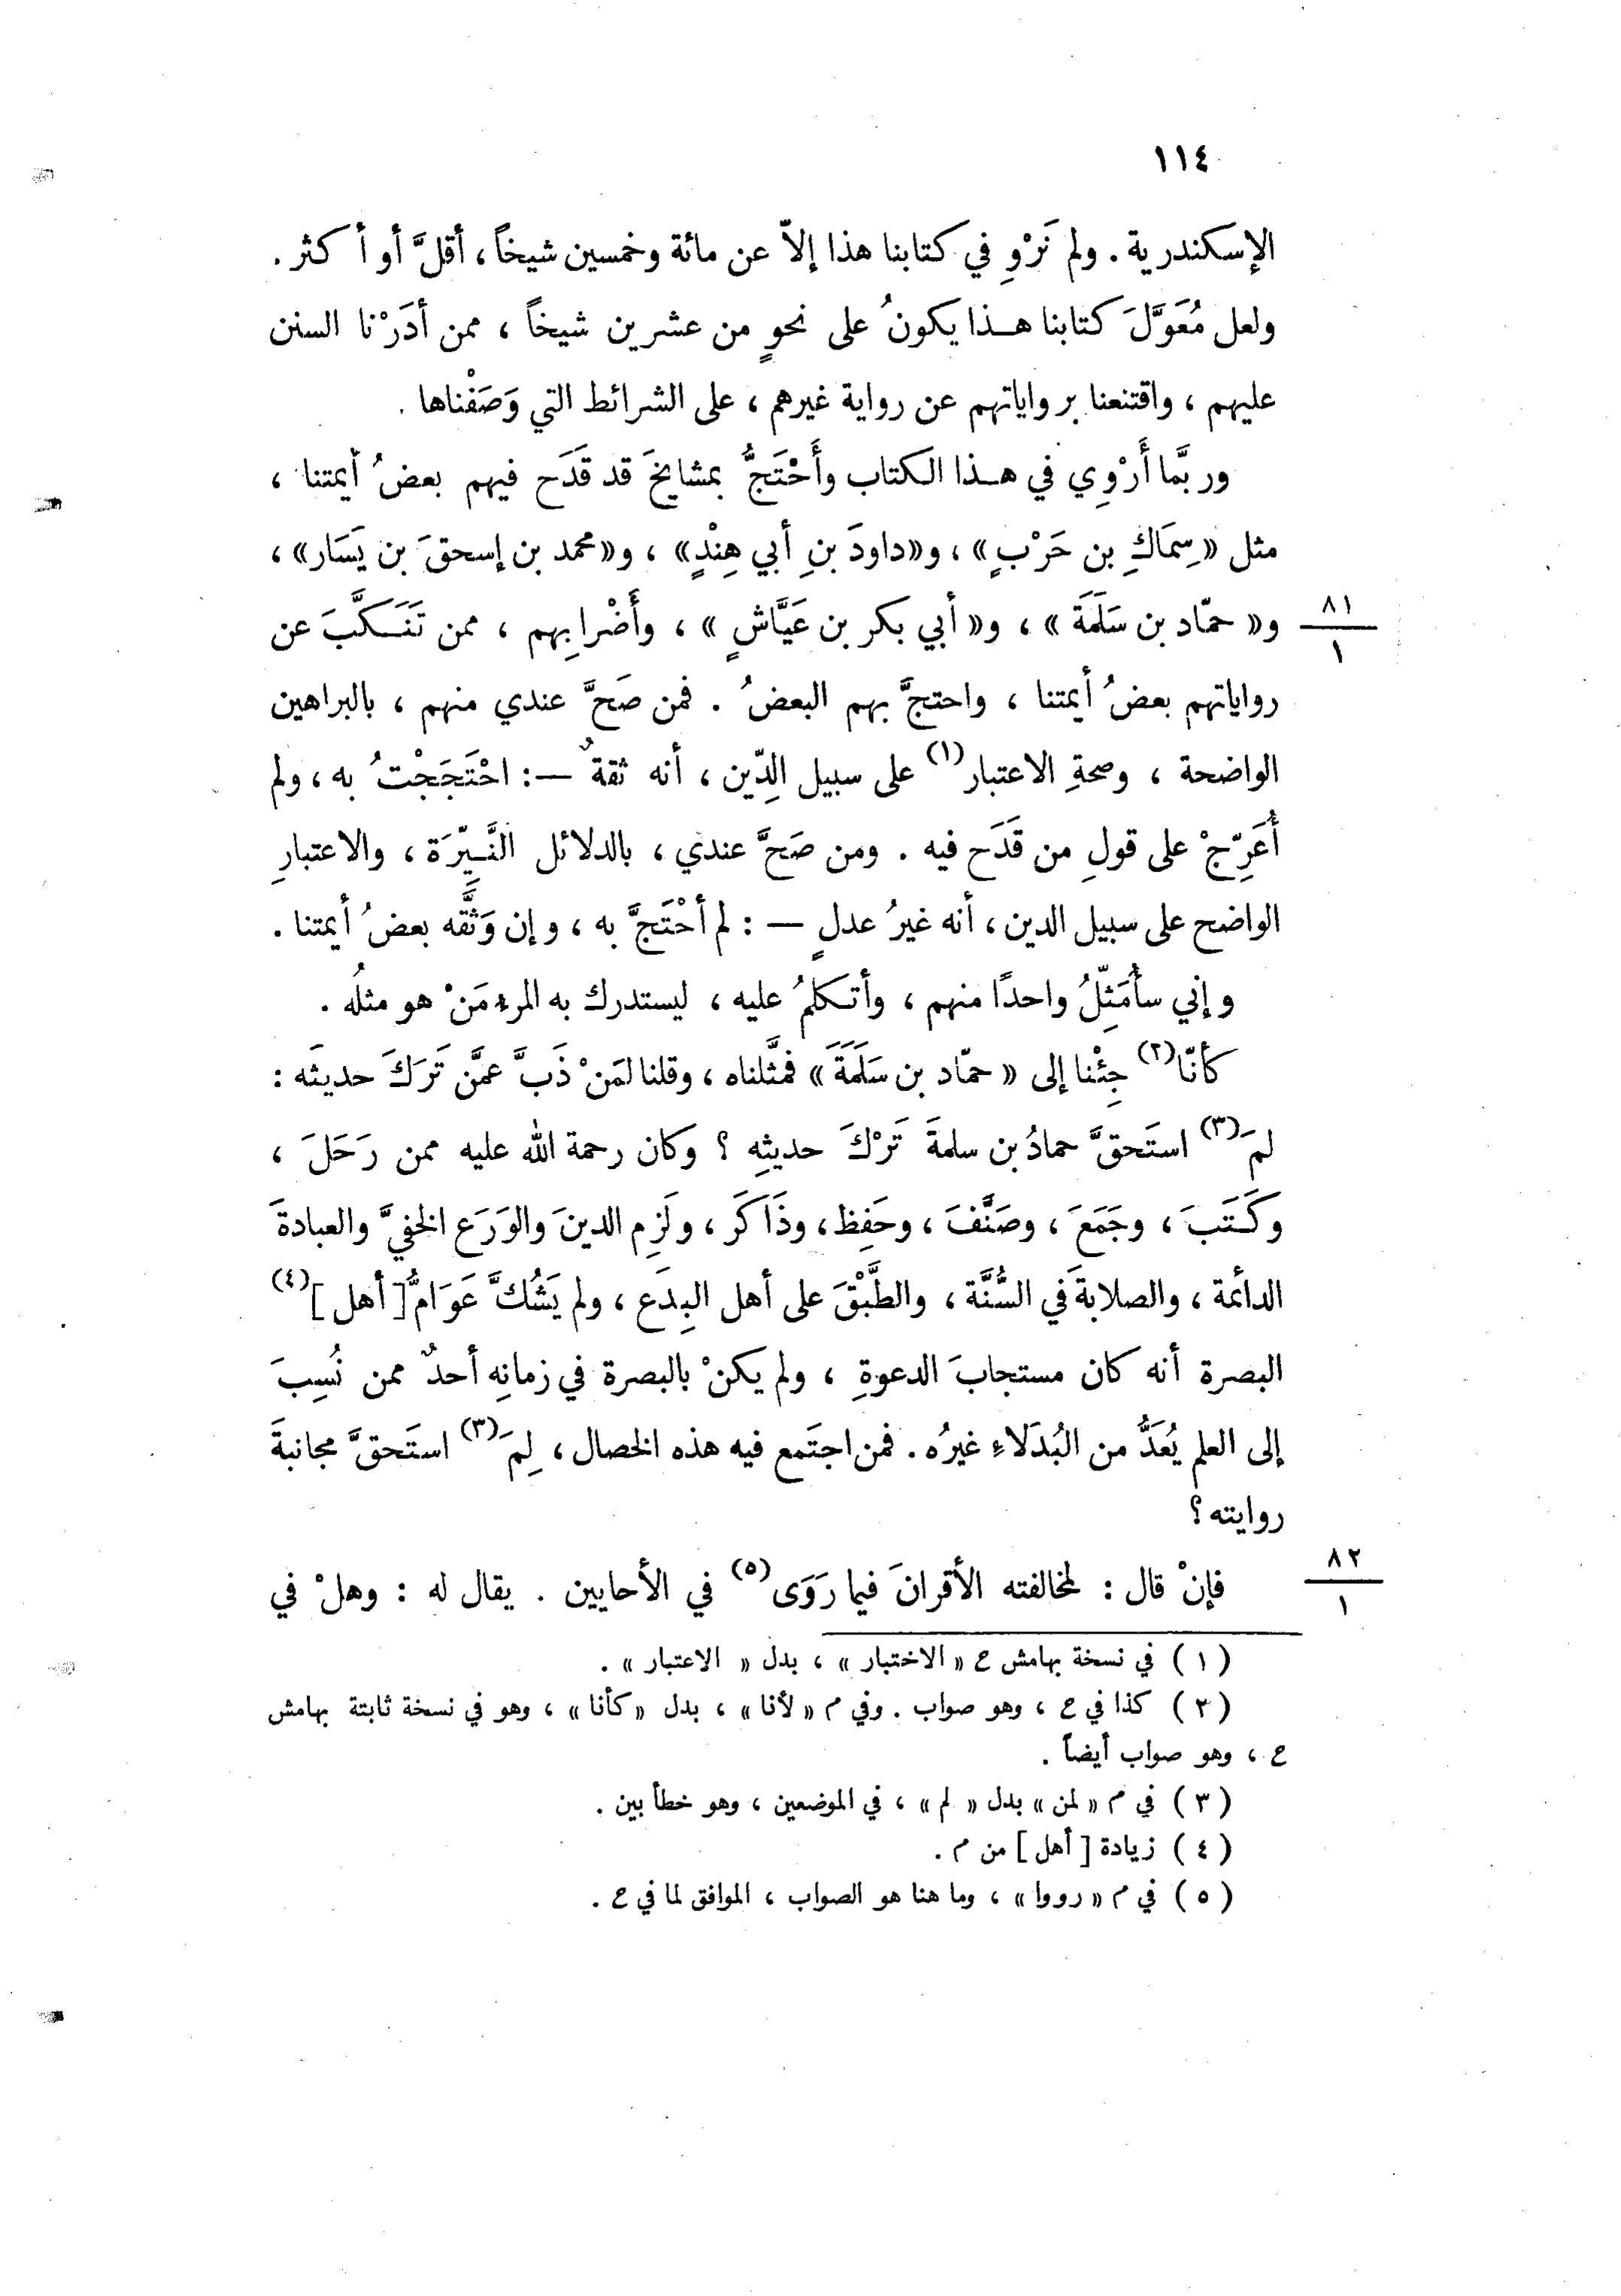 ١١٤
الإسكندرية . ولم نَرْوِ في كتابنا هذا إلاّ عن مائة وخمسين شيخاً ، أقلَّ أو أكثر .
ولعل مُعَوَّلَ كتابنا هـذا يكونُ على نحوٍ من عشرين شيخاً ، ممن أدَرْنا السنن
عليهم ، واقتنعنا برواياتهم عن رواية غيرهم ، على الشرائط التي وَصَفْناها .
وربَّما أَرْوِي في هـذا الكتاب وأَحْتَجُّ بمشايخَ قد قَدَح فيهم بعضُ أيمتنا ،
مثل «سِمَاكِ بن حَرْبٍ» ، و«داودَ بنِ أبي هِنْدٍ» ، و«محمد بن إسحقَ بن يَسَار» ،
٨١
و« حمّاد بن سَلَمَةَ » ، و« أبي بكر بن عَيَّاشٍ » ، وأَضْرابِهم ، ممن تَنَـكَّبَ عن
١
رواياتهم بعضُ أيمتنا ، واحتجَّ بهم البعضُ . فمن صَحَّ عندي منهم ، بالبراهين
الواضحة ، وصحةِ الاعتبار(١) على سبيل الدِّين ، أنه ثقةٌ — : احْتَجَجْتُ به ، ولم
أُعَرِّجْ على قولِ من قَدَح فيه . ومن صَحَّ عندي ، بالدلائل النَّـيِّرَة ، والاعتبارِ
الواضح على سبيل الدين ، أنه غيرُ عدلٍ — : لم أحْتَجَّ به ، وإن وَثَّقه بعضُ أيمتنا .
وإني سأُمَثِّلُ واحدًا منهم ، وأتـكلمُ عليه ، ليستدرك به المرء مَنْ هو مثلُه .
كأنّا(٢) جِئْنا إلى « حمّاد بن سَلَمَةَ » فمثَّلناه ، وقلنا لمَنْ ذَبَّ عمَّن تَرَكَ حديثَه :
لمَ(٣) استَحقَّ حمادُ بن سلمةَ تَرْكَ حديثِه ؟ وكان رحمة الله عليه ممن رَحَلَ ،
وكَـتَبَ ، وجَمَعَ ، وصَنَّفَ ، وحَفِظ ، وذَاكَرَ ، ولَزِم الدينَ والوَرَع الخفيَّ والعبادةَ
الدائمة ، والصلابةَ في السُّنَّة ، والطَّبْقَ على أهل البِدَع ، ولم يَشُكَّ عَوَامُّ [ أهل ](٤)
البصرة أنه كان مستجابَ الدعوةِ ، ولم يكنْ بالبصرة في زمانِه أحدٌ ممن نُسِبَ
إلى العلم يُعَدُّ من البُدَلاءِ غيرُه . فمن اجتَمع فيه هذه الخصال ، لِمَ(٣) استَحقَّ مجانبةَ
روايته ؟
٨٢
فإنْ قال : لمخالفته الأقرانَ فيما رَوَى(٥) في الأحايين . يقال له : وهلْ في
١
( ١ ) في نسخة بهامش ح « الاختبار » ، بدل « الاعتبار » .
( ٢ ) كذا في ح ، وهو صواب . وفي م « لأنا » ، بدل « كأنا » ، وهو في نسخة ثابتة بهامش
ح ، وهو صواب أيضاً .
( ٣ ) في م « لمن » بدل « لم » ، في الموضعين ، وهو خطأ بين .
( ٤ ) زيادة [ أهل ] من م .
( ٥ ) في م « رووا » ، وما هنا هو الصواب ، الموافق لما في ح .